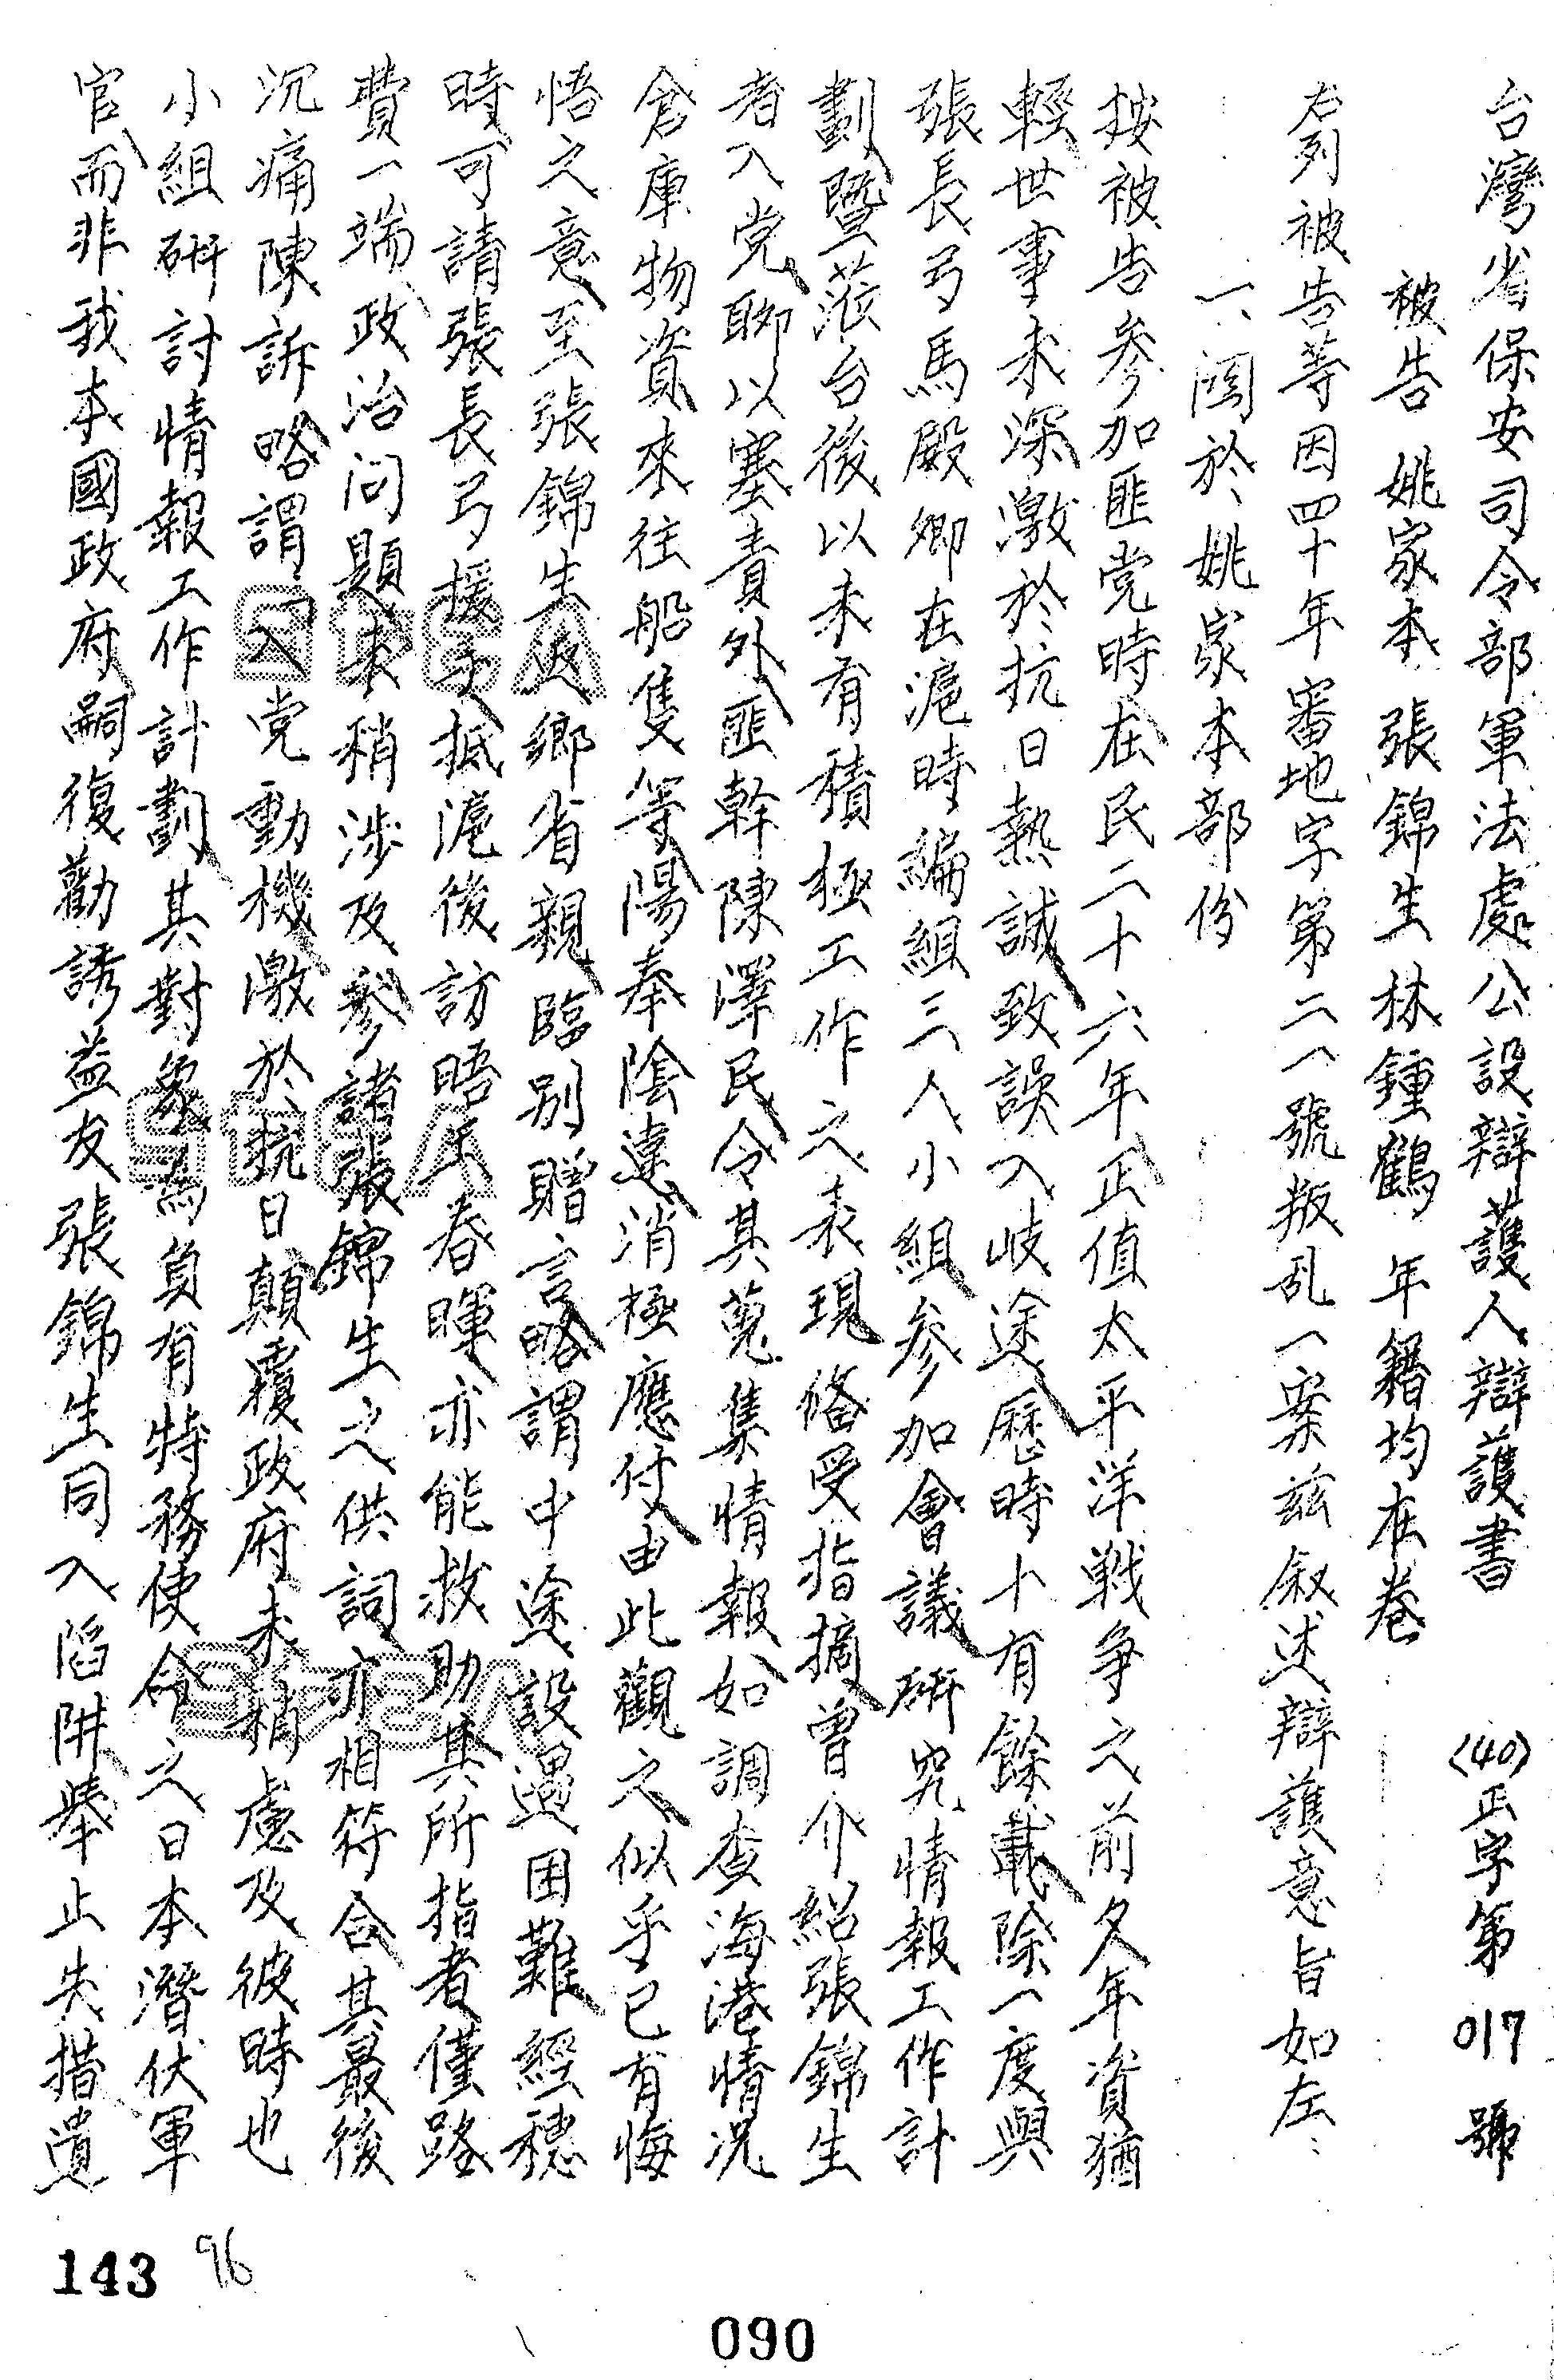 台灣省保安司令部軍法處公設辯護人辯護書 (40)正字第017號
被告 姚家本 張錦生 林鍾鶴 年籍均在卷
右列被告等因四十年審地字第二八號叛乱一案茲叙述辯護意旨如左:
一、関於姚家本部份
按被告參加匪党時在民二十六年正值太平洋戦争之前夕年資猶
輕世事未深激於抗日熱誠致誤入岐途歷時十有餘載除一度與
張長弓馬殿卿在滬時編組三人小組參加會議研究情報工作計
劃暨蒞台後以未有積極工作之表現俻受指摘曾介紹張錦生
者入党聊以塞責外匪幹陳澤民令其蒐集情報如調查海港情况
倉庫物資來往船隻等陽奉陰違消極應付由此觀之似乎已有悔
悟之意至張錦生返鄉省親臨别贈言略謂中途設遇困難經穗
時可請張長弓援手抵滬後訪晤王春暉亦能救助其所指者僅路
費一端政治问題未稍涉及參諸張錦生之供詞亦相符合其最後
沉痛陳訴略謂入党動機激於抗日顛覆政府未稍慮及彼時也
小組研討情報工作計劃其對象為負有特務使命之日本潛伏軍
官而非我本國政府嗣復勸誘益友張錦生同入陷阱舉止失措遺
143 96
090
StCA
StCA
StCA